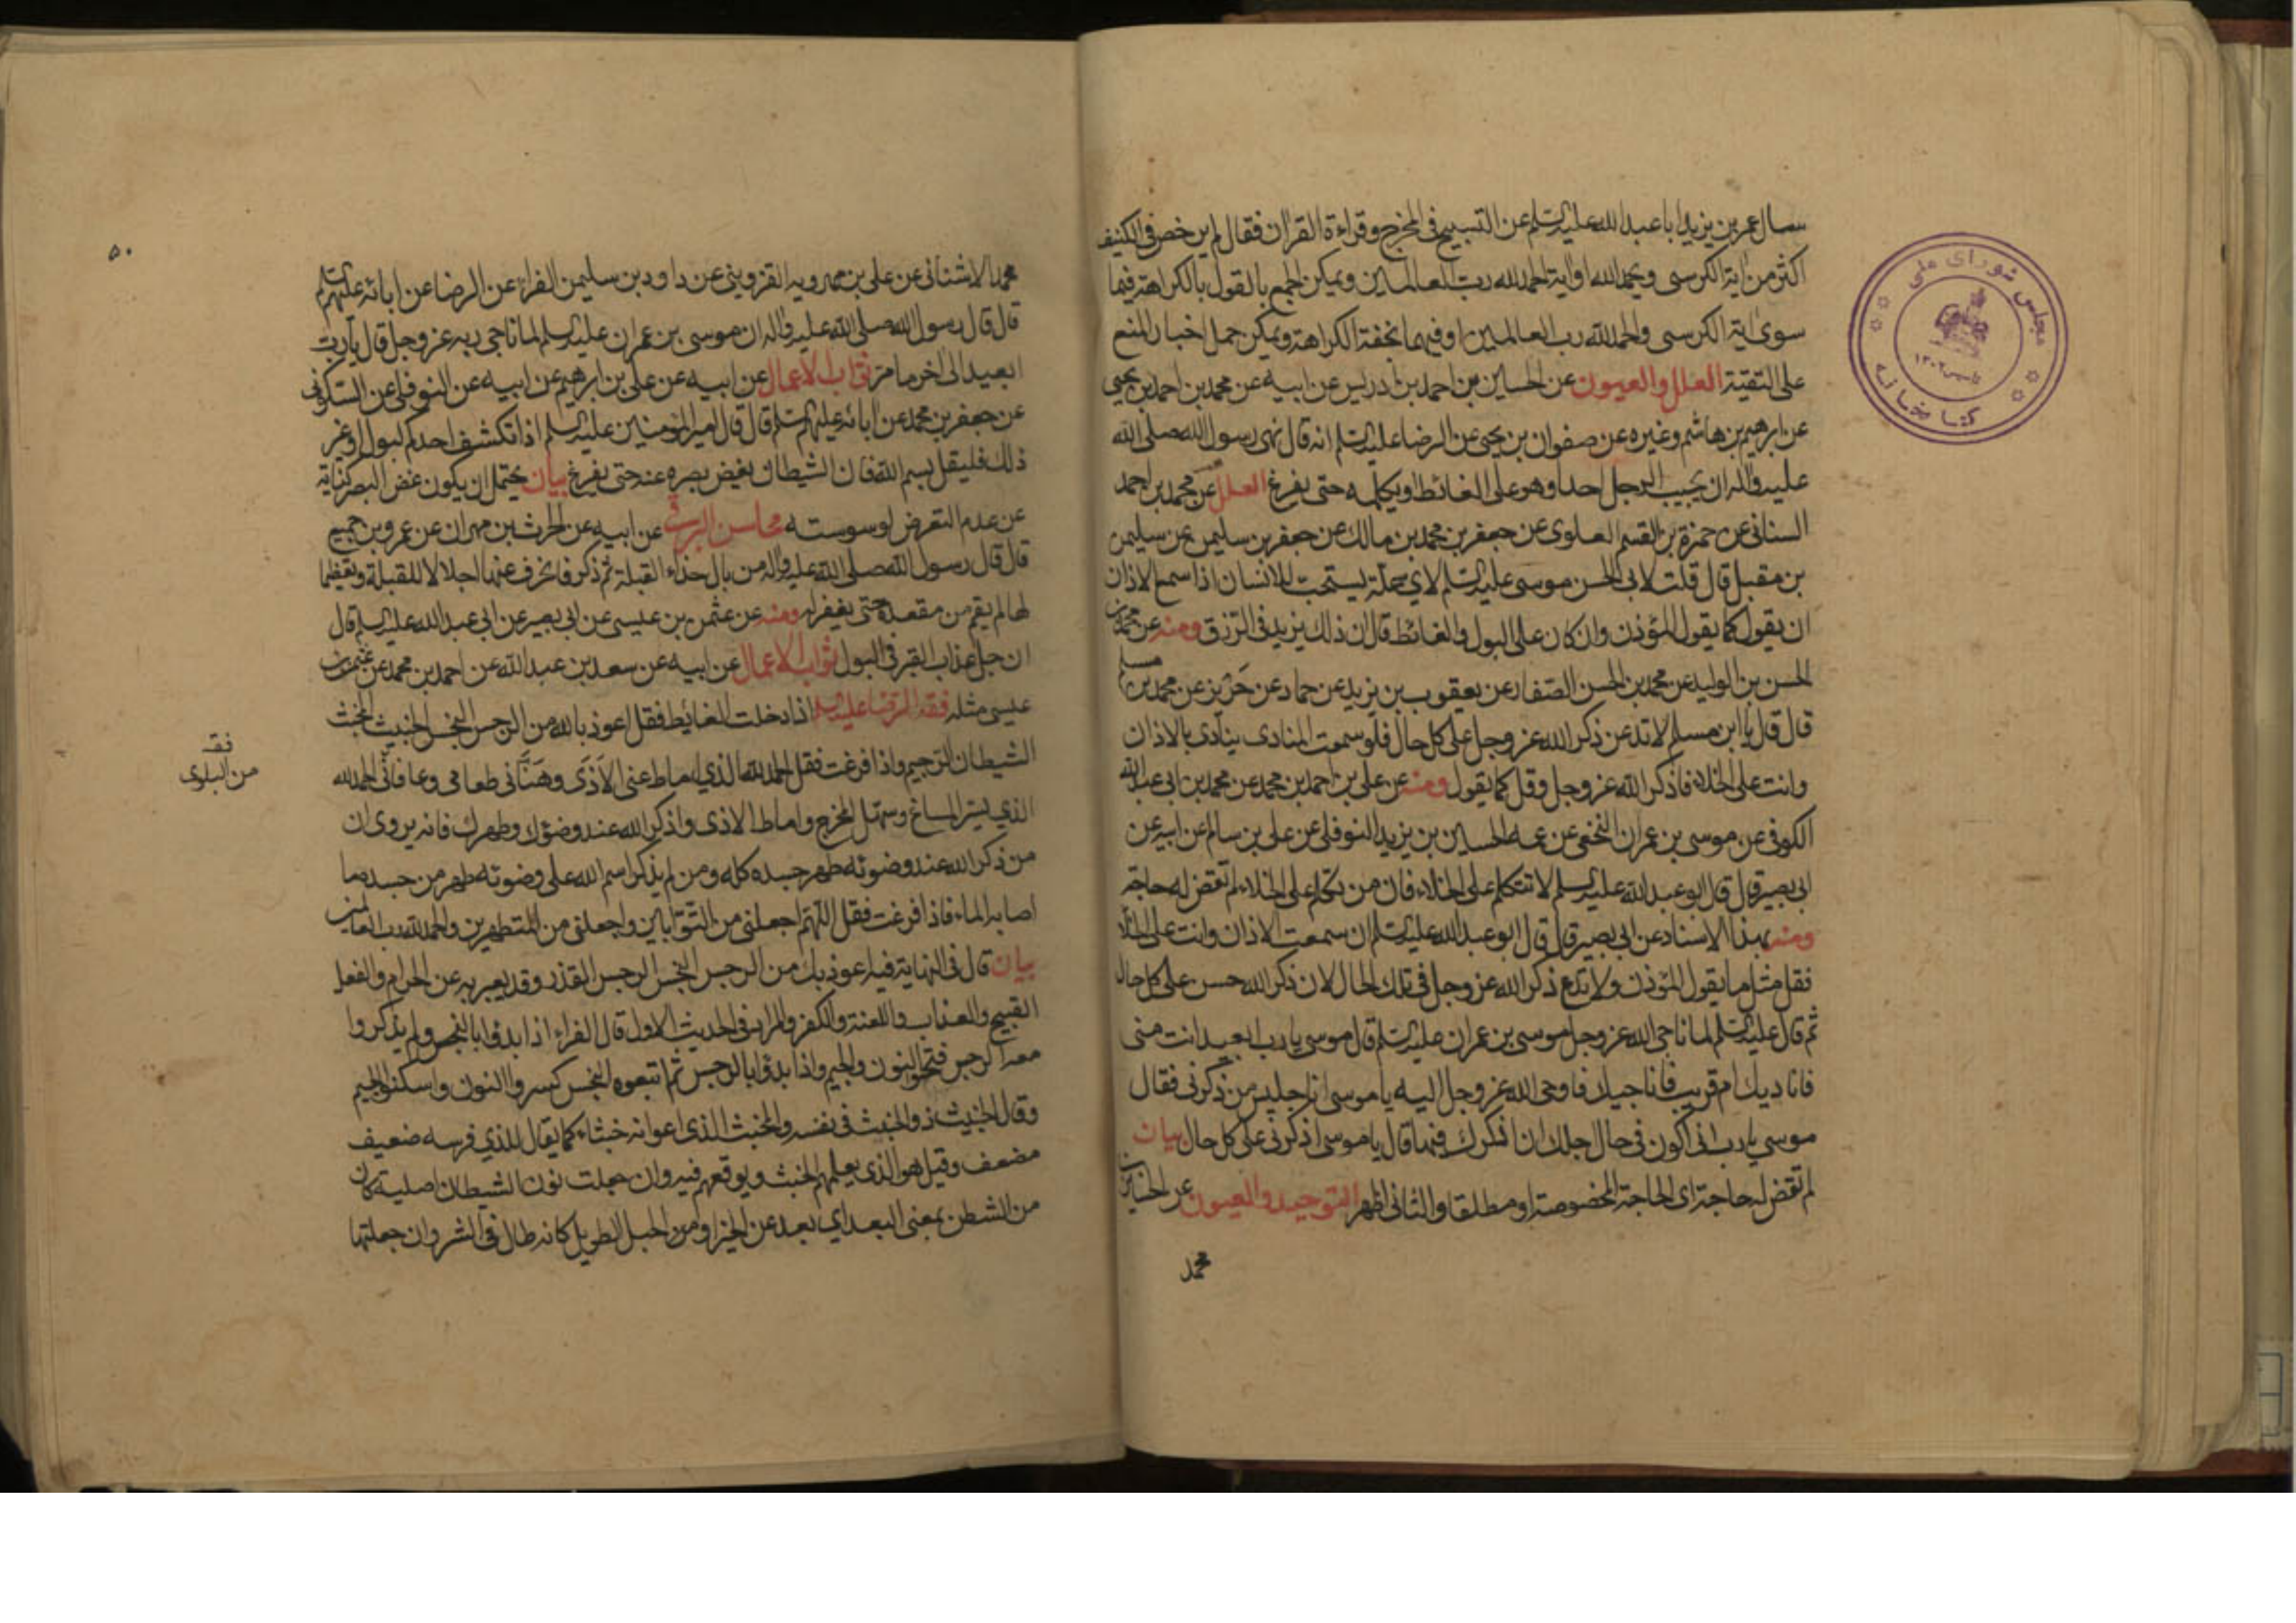 سال عمر بن يزيد ابا عبد الله عليه السلم عن التسبيح في المخرج وقراءة القران فقال لم يرخص في الكنيف
اكثر من اية الكرسى ويحمد الله او اية الحمد لله رب العالمين ويمكن الجمع بالقول بالكراهة فيما
سوى اية الكرسى والحمد لله رب العالمين او فيهما بخفة الكراهة ويمكن حمل اخبار المنع
على التقية العلل والعيون عن الحسين بن احمد بن ادريس عن ابيه عن محمد بن احمد بن يحيى
عن ابرهيم بن هاشم وغيره عن صفوان بن يحيى عن الرضا عليه السلم انه قال نهى رسول الله صلى الله
عليه واله ان يجيب الرجل احدا وهو على الغائط او يكلمه حتى يفرغ العلل عن محمد بن احمد
السنانى عن حمزة بن القسم العلوى عن جعفر بن محمد بن مالك عن جعفر بن سليمن عن سليمن
بن مقبل قال قلت لابى الحسن موسى عليه السلم لاي علة يستحب للانسان اذا سمع الاذان
ان يقول كما يقول المؤذن وان كان على البول والغائط قال ان ذلك يزيد فى الرزق ومنه عن محمد بن
الحسن بن الوليد عن محمد بن الحسن الصفار عن يعقوب بن يزيد عن حماد عن حريز عن محمد بن مسلم
قال قال يا ابن مسلم لا تدعن ذكر الله عز وجل على كل حال فلو سمعت المنادى ينادى بالاذان
وانت على الخلاء فاذكر الله عز وجل وقل كما يقول ومنه عن على بن احمد بن محمد عن محمد بن ابى عبد الله
الكوفى عن موسى بن عمران النخعى عن عمه الحسين بن يزيد النوفلى عن على بن سالم عن ابيه عن
ابى بصير قال قال ابو عبد الله عليه السلم لا تتكلم على الخلاء فان من تكلم على الخلاء لم تقض له حاجة
ومنه بهذا الاسناد عن ابى بصير قال قال ابو عبد الله عليه السلم ان سمعت الاذان وانت على الخلا
فقل مثل ما يقول المؤذن ولا تدع ذكر الله عز وجل فى تلك الحال لان ذكر الله حسن على كل حال
ثم قال عليه السلم لما ناجى الله عز وجل موسى بن عمران عليه السلم قال موسى يا رب ابعيد انت منى
فاناديك ام قريب فاناجيك فاوحى الله عز وجل اليه يا موسى انا جليس من ذكرنى فقال
موسي يا رب انى اكون فى حال اجلك ان اذكرك فيها قال يا موسى اذكرنى على كل حال بيان
لم تقض له حاجة اى الحاجة المخصوصة او مطلقا والثانى اظهر التوحيد والعيون عن الحسين بن
محمد
مجلس شوراى ملى
كتابخانه
تاسيس ١٣٠٢
٥٠
محمد الاشنانى عن على بن مهرويه القزوينى عن داود بن سليمن الفراء عن الرضا عن ابائه عليهم السلم
قال قال رسول الله صلى الله عليه واله ان موسى بن عمران عليه السلم لما ناجى ربه عز وجل قال يا رب
ابعيد الى اخر ما مر ثواب الاعمال عن ابيه عن على بن ابرهيم عن ابيه عن النوفلى عن السكونى
عن جعفر بن محمد عن ابائه عليهم السلم قال قال امير المؤمنين عليه السلم اذا تكشف احدكم لبول او غير
ذلك فليقل بسم الله فان الشيطان يغض بصره عنه حتى يفرغ بيان يحتمل ان يكون غض البصر كناية
عن عدم التعرض لوسوسته محاسن البرقى عن ابيه عن الحرث بن مهران عن عمرو بن جميع
قال قال رسول الله صلى الله عليه واله من بال حذاء القبلة ثم ذكر فانحرف عنها اجلالا للقبلة وتعظيما
لها لم يقم من مقعده حتى يغفر له ومنه عن عثمن بن عيسى عن ابى بصير عن ابى عبد الله عليه السلم قال
ان جل عذاب القبر فى البول ثواب الاعمال عن ابيه عن سعد بن عبد الله عن احمد بن محمد عن عثمن بن
عيسى مثله فقه الرضا عليه السلم اذا دخلت الغائيط فقل اعوذ بالله من الرجس النجس الخبيث المخبث
الشيطان الرجيم واذا فرغت فقل الحمد لله الذي اماط عنى الاذى وهنأنى طعامى وعافانى الحمد لله
الذي يسر المساغ وسهل المخرج واماط الاذى واذكر الله عند وضوئك وطهرك فانه يروى ان
من ذكر الله عند وضوئه طهر جسده كله ومن لم يذكر اسم الله على وضوئه طهر من جسده ما
اصابه الماء فاذا فرغت فقل اللهم اجعلنى من التوابين واجعلنى من المتطهرين والحمد لله رب العالمين
بيان قال فى النهاية فيه اعوذ بك من الرجس النجس الرجس القذر وقد يعبر به عن الحرام والفعل
القبيح والعذاب واللعنة والكفر والمراد فى الحديث الاول قال الفراء اذا بدؤا بالنجس ولم يذكروا
معه الرجس فتحوا النون والجيم واذا بدؤا بالرجس ثم اتبعوه النجس كسروا النون واسكنوا الجيم
وقال الخبيث ذو الخبث فى نفسه والمخبث الذى اعوانه خبثاء كما يقال للذي فرسه ضعيف
مضعف وقيل هو الذى يعلمهم الخبث ويوقعهم فيه وان جعلت نون الشيطان اصلية كان
من الشطن بمعنى البعد اي بعد عن الخير او من الحبل الطويل كانه طال فى الشر وان جعلتها
فقه
من البلوى